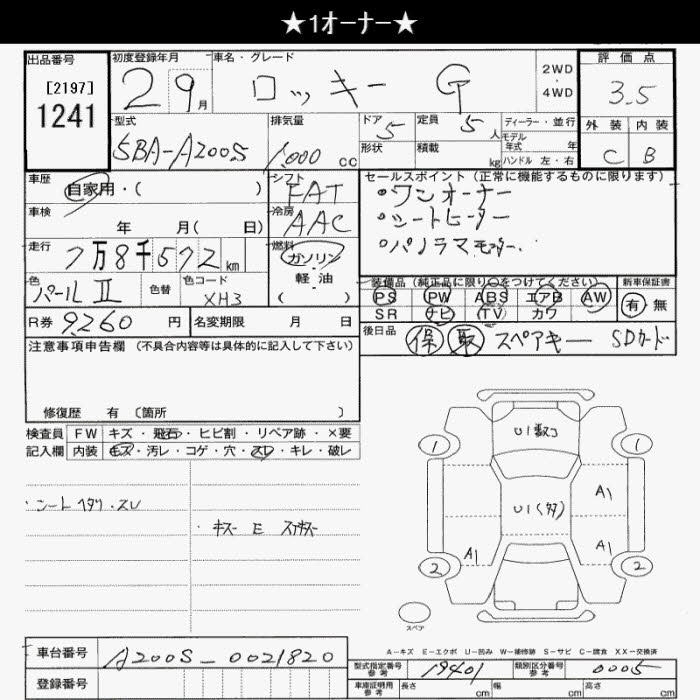 ★1オーナー★
出品番号
[2197]
1241
初度登録年月
2 9月
車名・グレード
ロッキー G
2WD
4WD
評価点
3.5
外装 内装
C B
型式
5BA-A200S
排気量
1,000 cc
ドア 5
形状
定員 5 人
積載 kg
ディーラー・並行
モデル年式 年
ハンドル 左・右
車歴
自家用・( )
シフト
FAT
車検
年 月( 日)
冷房
AAC
走行
7万8千572km
燃料
ガソリン・軽油
( )
色
パールⅡ
色替
色コード
XH3
R券 9,260 円
名変期限 月 日
セールスポイント(正常に機能するものに限ります)
•ワンオーナー
•シートヒーター
•パノラマモニター.
装備品(純正品に限り○をつけてください)
PS PW ABS エアB AW
SR ナビ (TV) カワ
新車保証書
有 無
後日品 保 取 スペアキー SDカード
注意事項申告欄(不具合内容等は具体的に記入して下さい)
修復歴 有 〔箇所 〕
検査員記入欄
FW キズ・飛石・ヒビ割・リペア跡・×要
内装 モス・汚レ・コゲ・穴・スレ・キレ・破レ
・シートヘタリ・スレ
・キズ E スアキズ
U1数コ
1 1
A1
U1(多)
A1 A1
2 2
スペア
A-キズ E-エクボ U-凹み W-補修跡 S-サビ C-腐食 XX-交換済
車台番号 A200S-0021820
登録番号
型式指定番号 参考 19401
類別区分番号 参考 0005
車庫証明用 参考 長さ cm 幅 cm 高さ cm